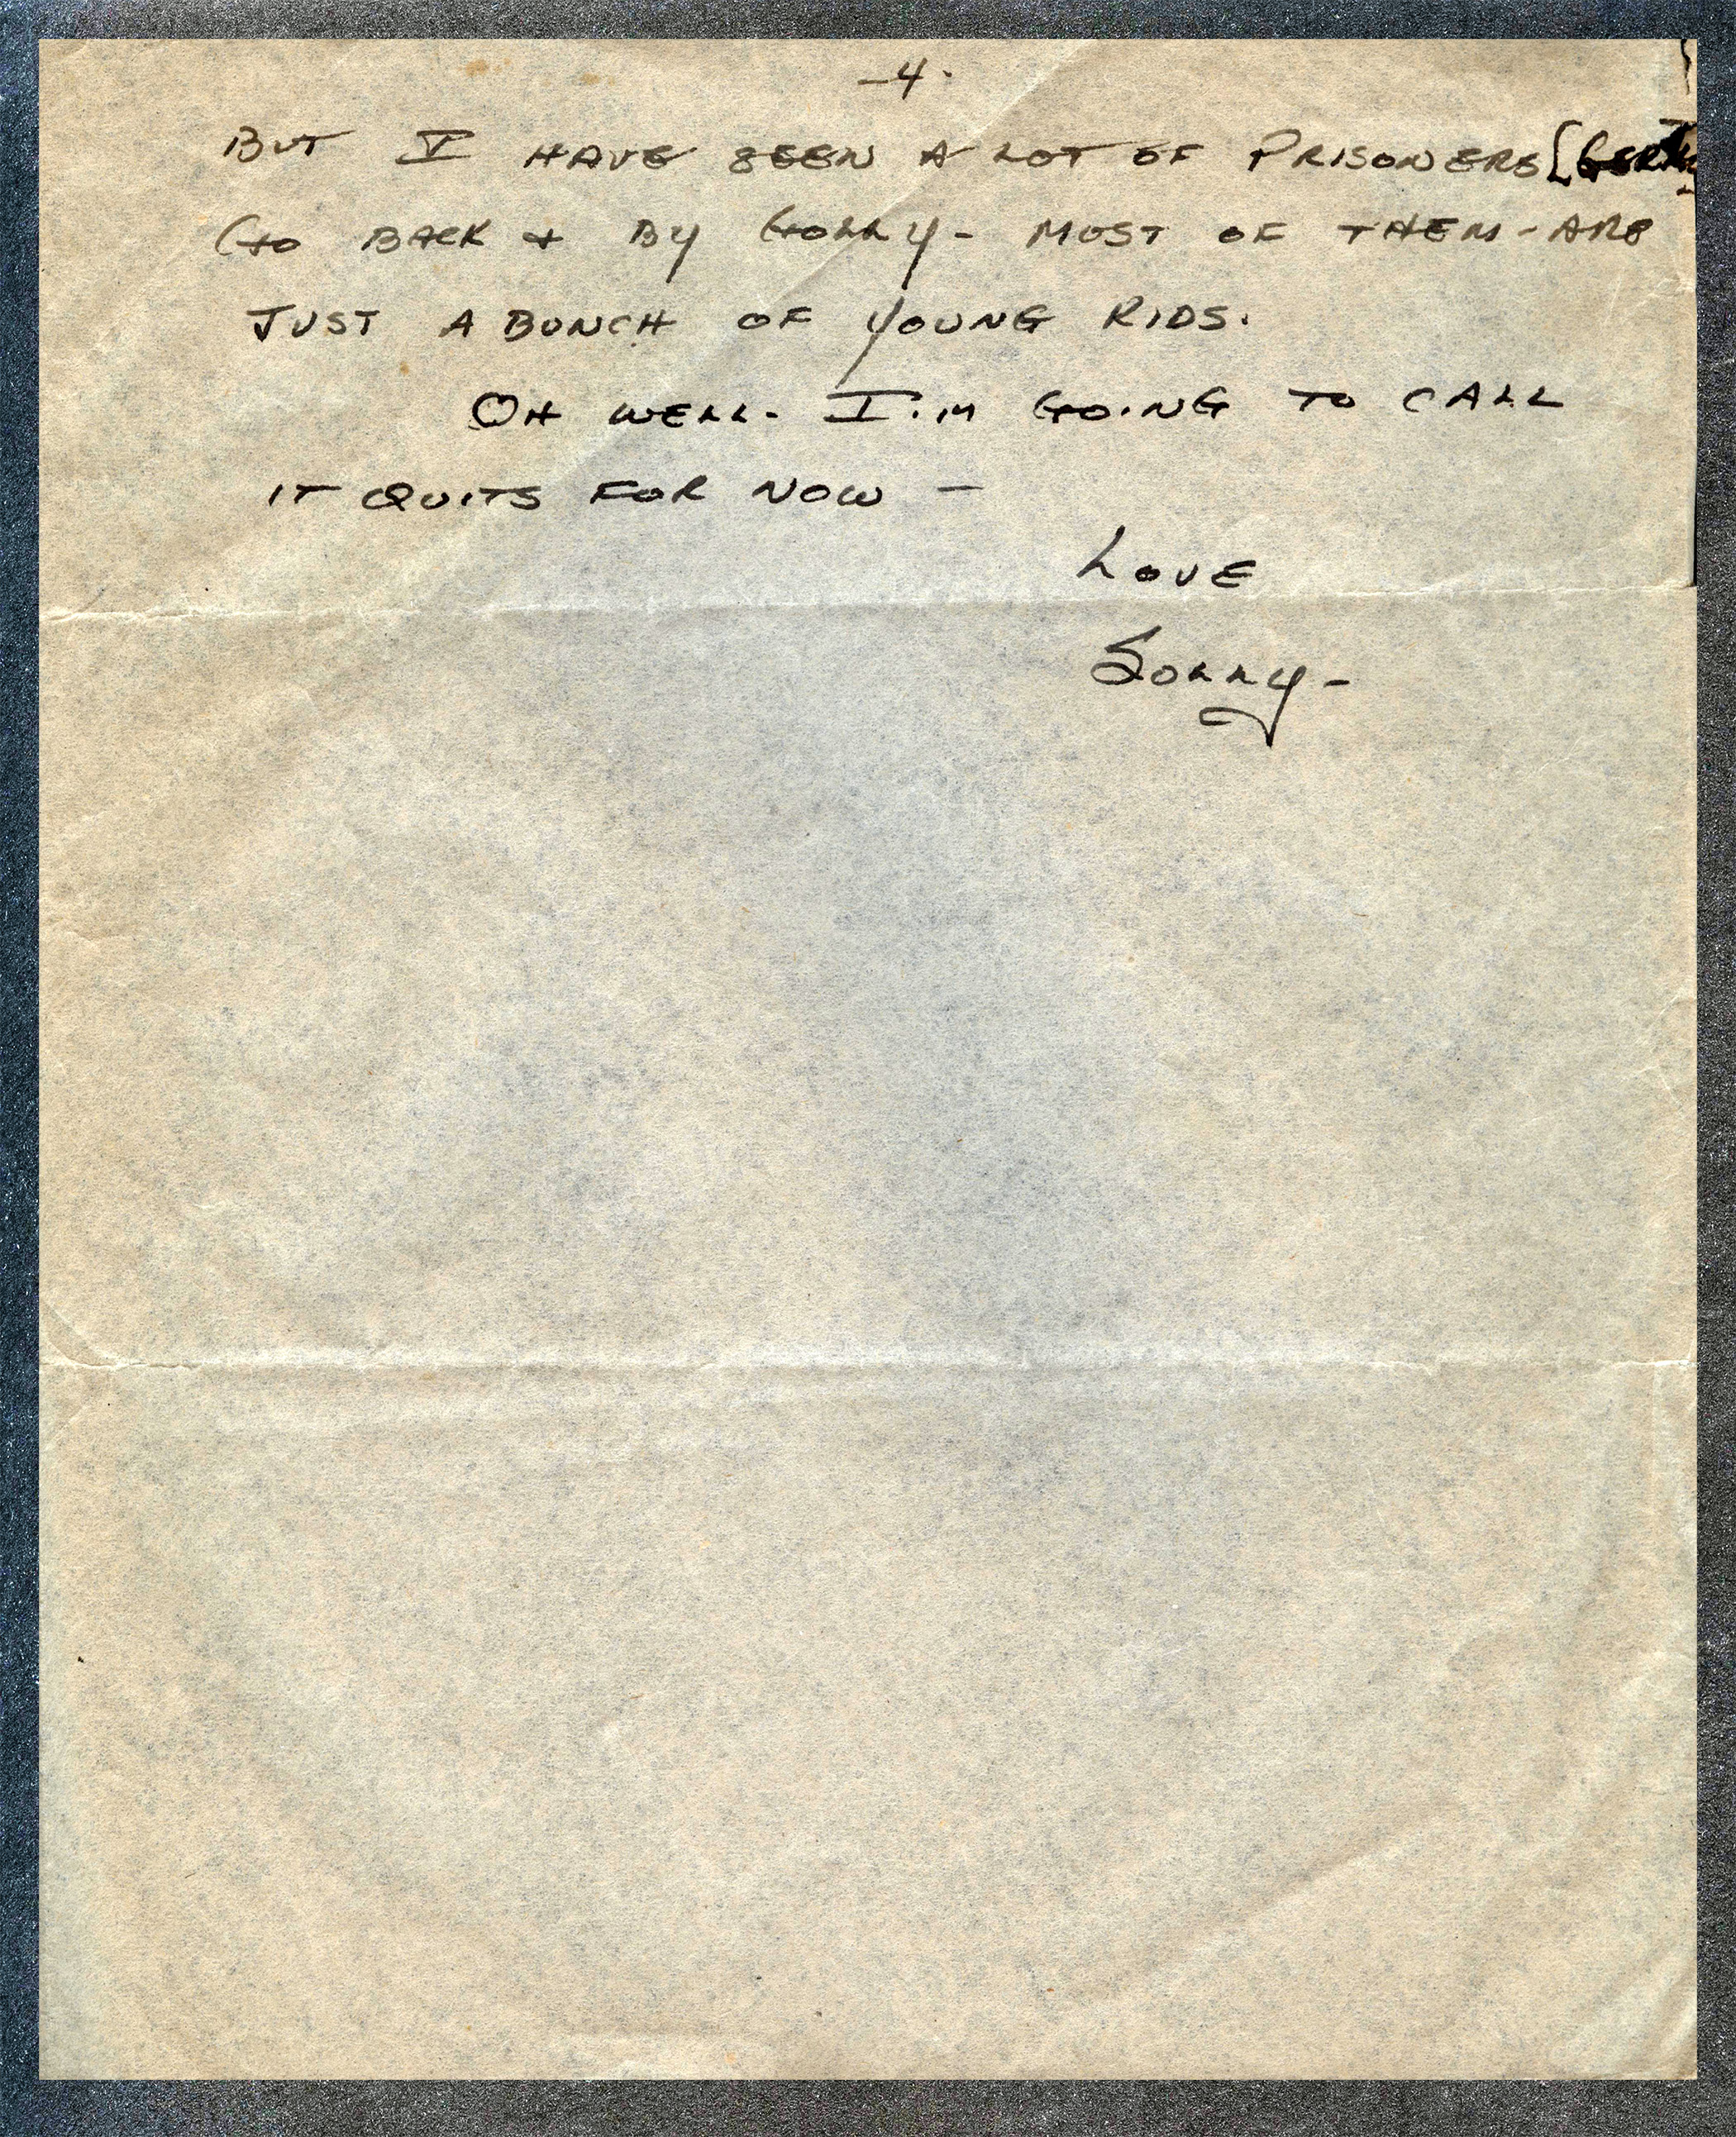 -4-
BUT I HAVE SEEN A LOT OF PRISONERS
GO BACK & BY GOLLY- MOST OF THEM-ARE
JUST A BUNCH OF YOUNG KIDS.
OH WELL- I'M GOING TO CALL
IT QUITS FOR NOW -
LOVE
SOLLY-